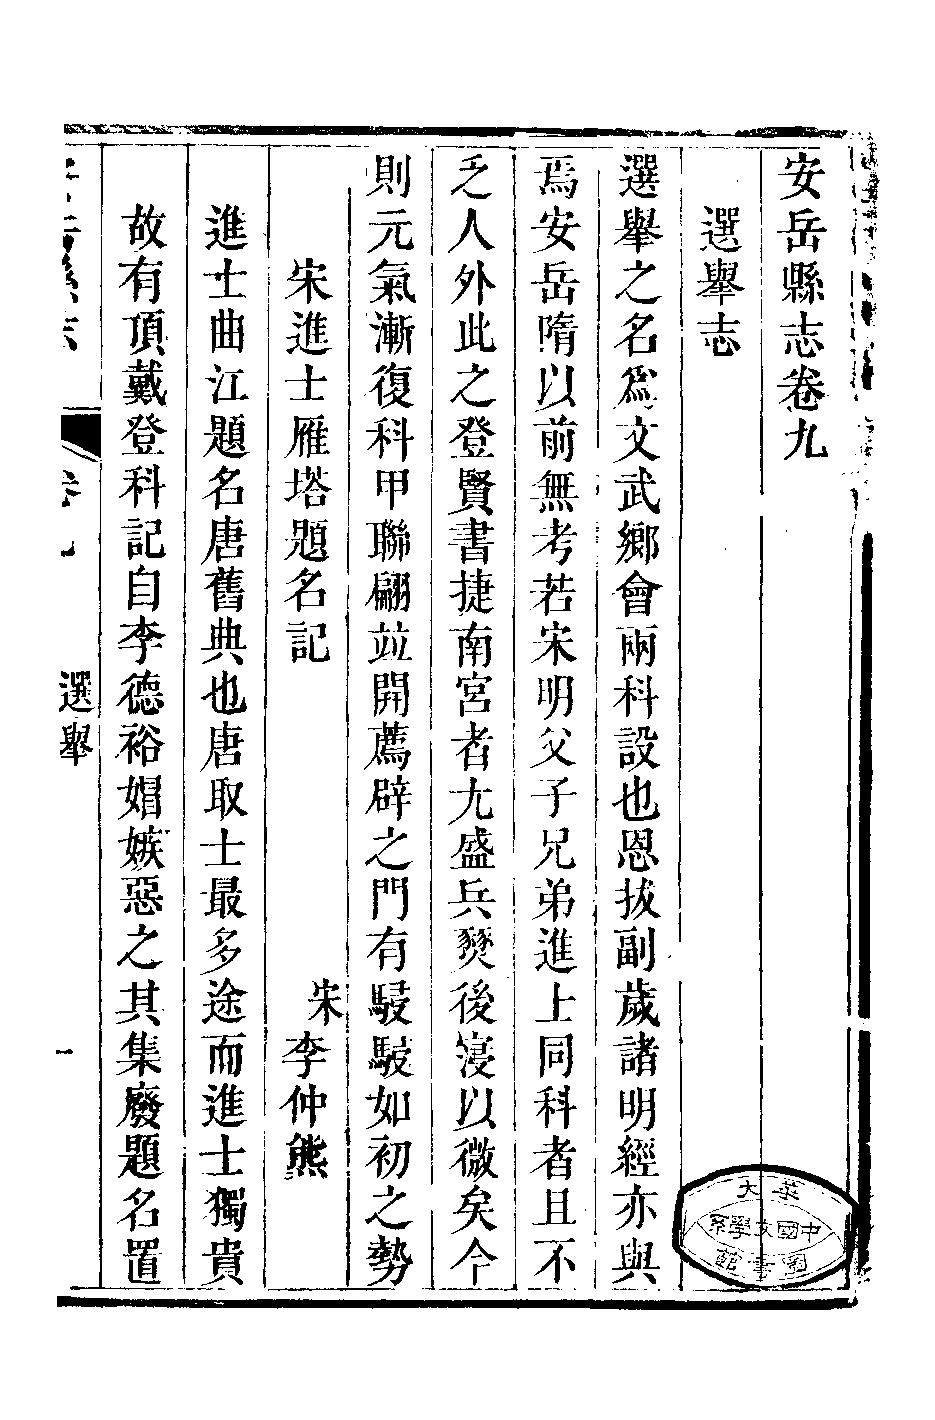 安岳縣志卷九
選舉志
選舉之名爲文武鄉會兩科設也恩拔副歲諸明經亦與
焉安岳隋以前無考若宋明父子兄弟進士同科者且不
乏人外此之登賢書捷南宮者尤盛兵燹後寖以微矣今
則元氣漸復科甲聯翩並開薦辟之門有駸駸如初之勢
宋進士雁塔題名記
宋
李仲熊
進士曲江題名唐舊典也唐取士最多途而進士獨貴
故有頂戴登科記自李德裕媢嫉惡之其集廢題名置
安岳縣志
卷九
選舉
一
中國文學系
圖書館